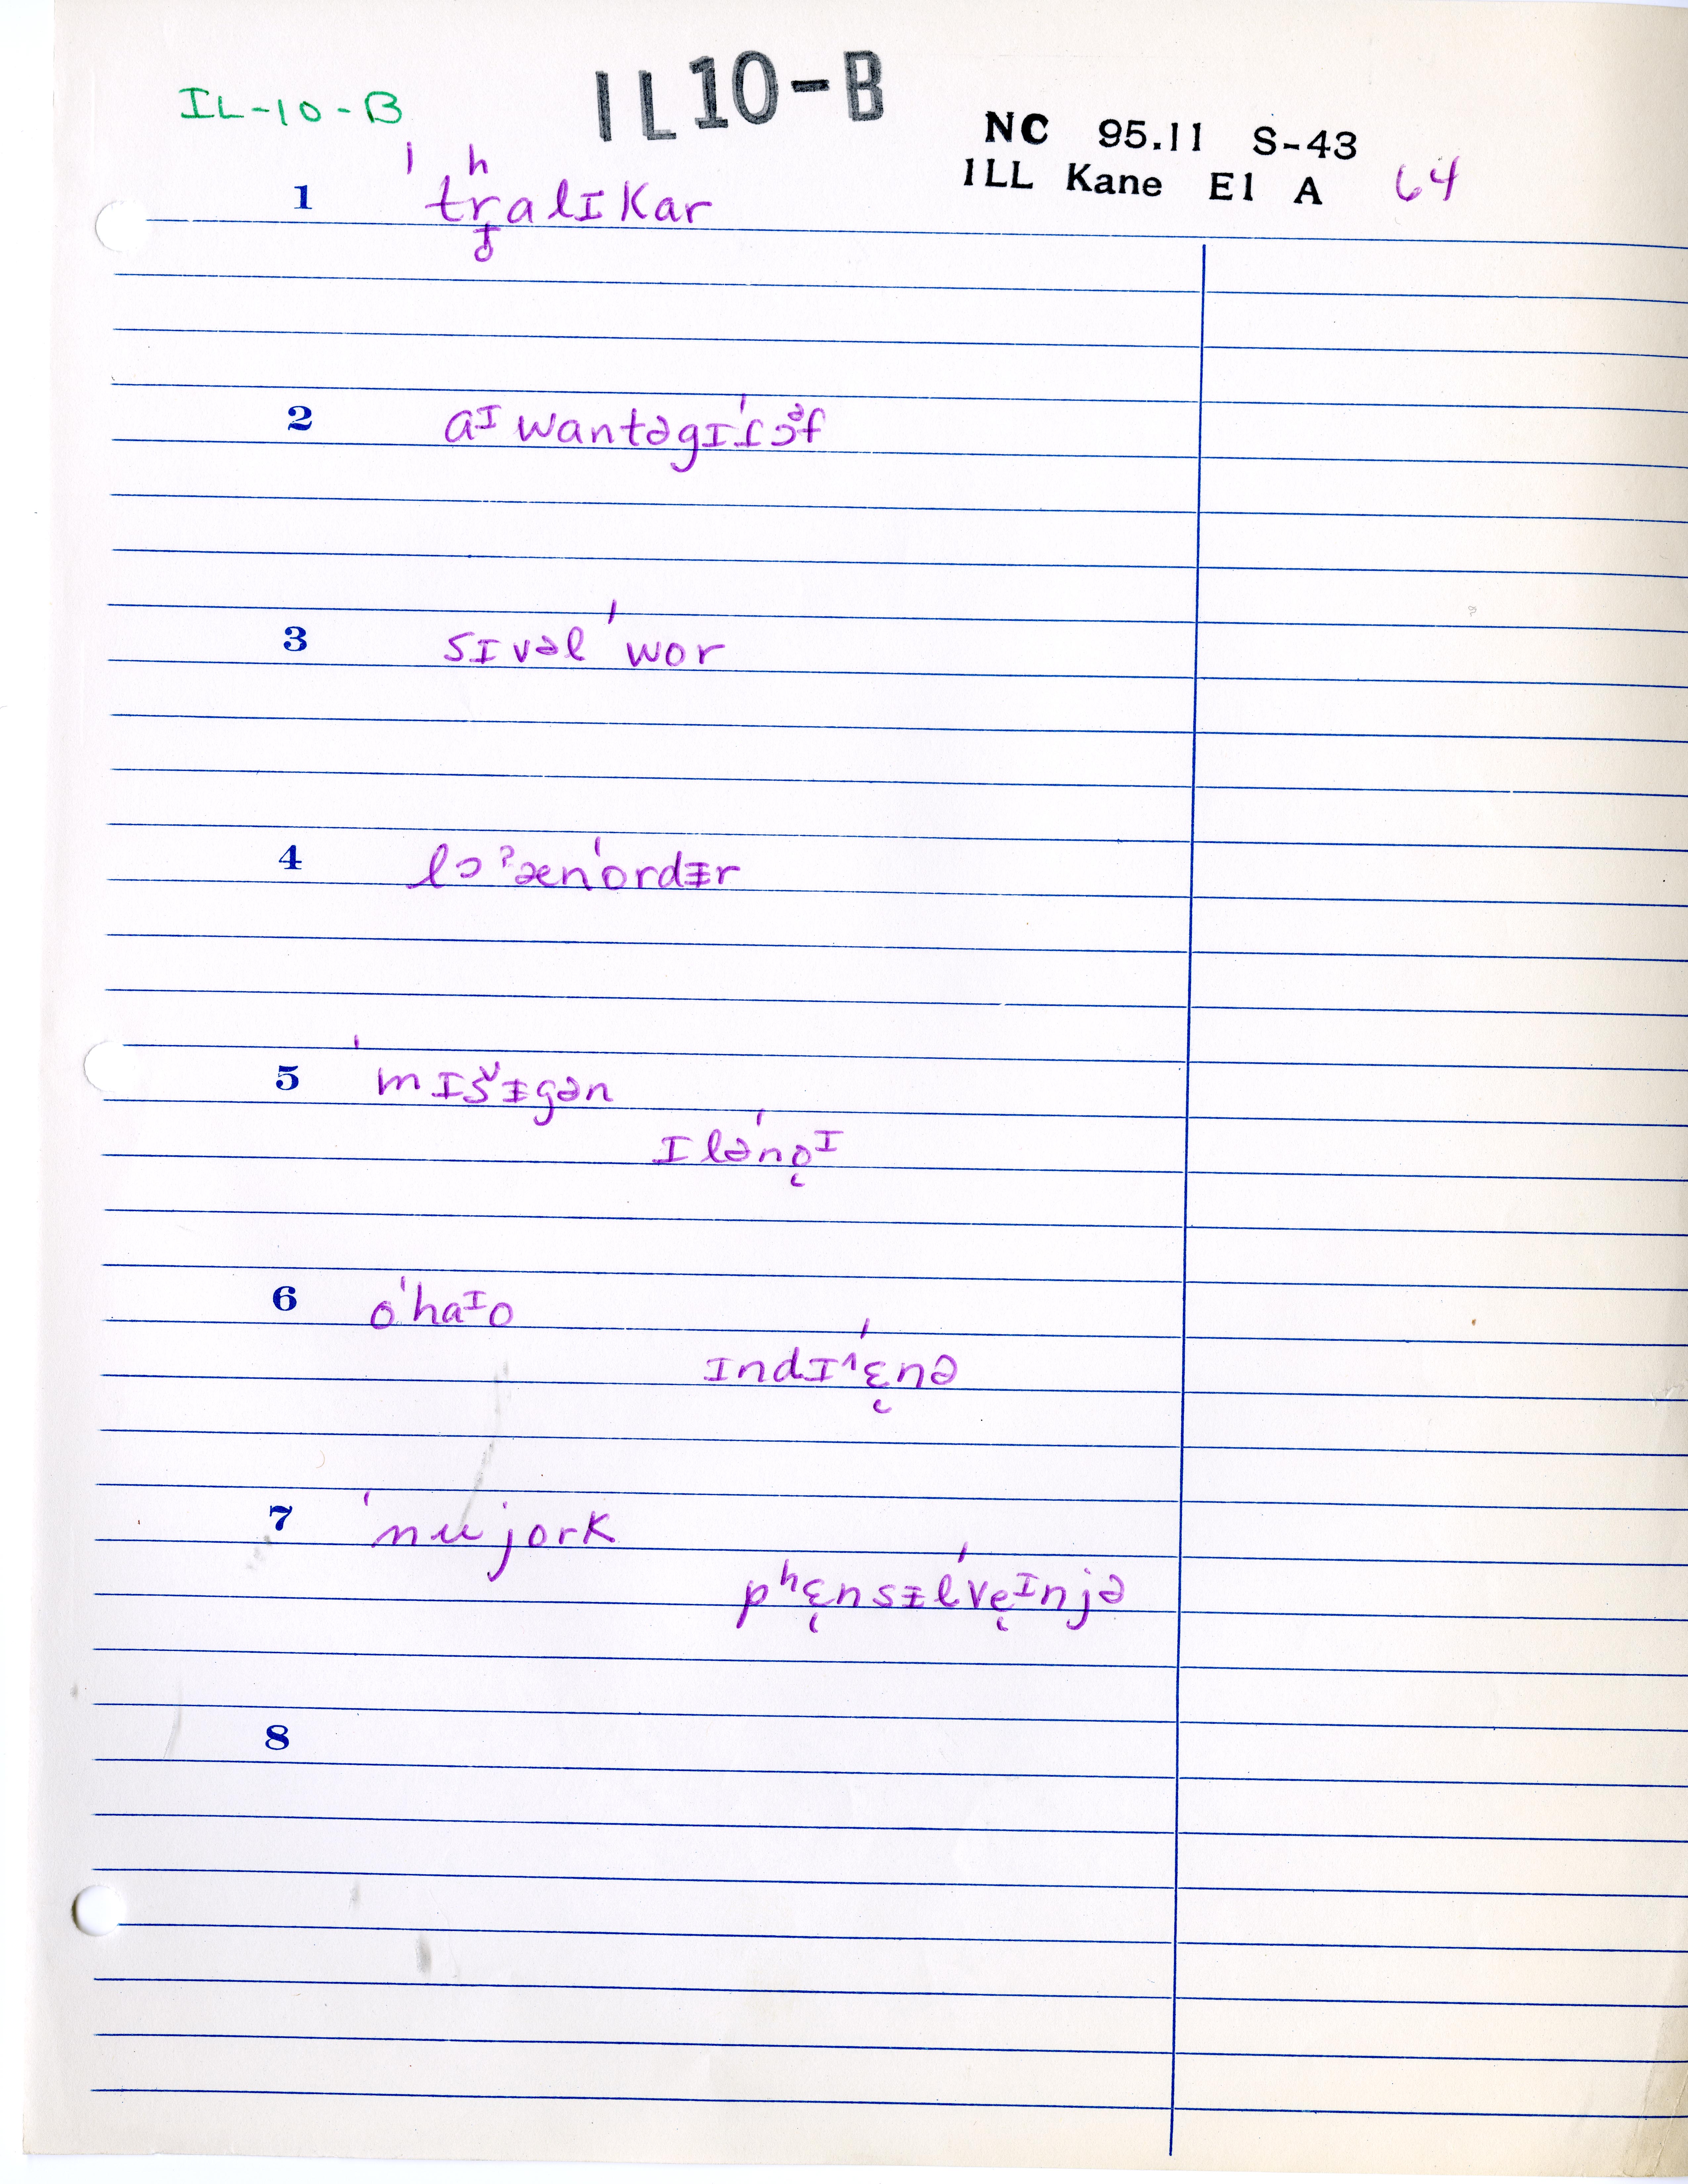 IL-10-B
IL10-B
NC 95.11 S-43
ILL Kane E1 A 64
1 ˈtʰr̥alɪkar
2 aɪ wantəgɪˈɾɔᵊf
3 sɪvəl ˈwor
4 lɔˀænˈordɨr
5 ˈmɪšɨgən
ɪləˈno̜ᶦ
6 oˈhaᶦo
ɪndɪˈɛ̜nə
7 ˈnujork
pʰɛ̜nsɨlˈve̜ᶦnjə
8